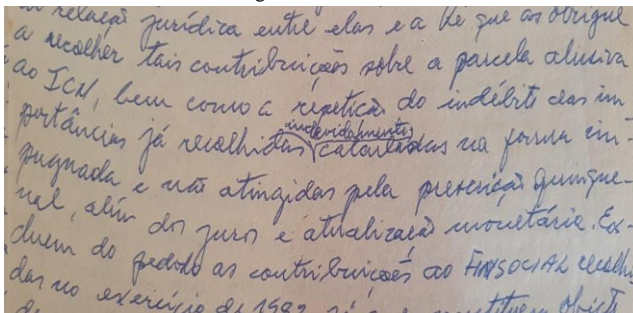 relação jurídica entre elas e a Ré que as obrigue
a recolher tais contribuições sôbre a parcela alusiva
ao ICM, bem como a repetição do indébito das im
portâncias já recolhidas indevidamente calculadas na forma im-
pugnada e não atingidas pela prescrição quinque-
nal, além dos juros e atualização monetária. Ex-
cluem do pedido as contribuições ao FINSOCIAL recolhi
das no exercício de 1982